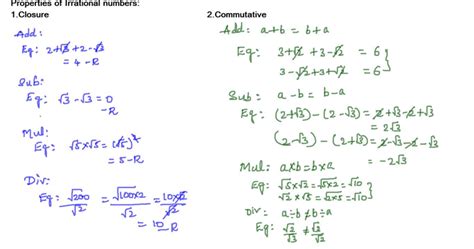 Properties of Irrational numbers:
1.Closure
Add:
Eg: 2+√3+2-√3
= 4-R
Sub:
Eg: √3-√3=0
-R
Mul:
Eg: √5x√5 = (√5)²
= 5-R
Div:
Eg: √200/√2 = √100x2/√2 = 10x√2/√2
= 10-R
2.Commutative
Add: a+b = b+a
Eg: 3+√2+3-√2 = 6
3-√2+3+√2 = 6
Sub: a-b = b-a
Eg: (2+√3)-(2-√3) = 2+√3-2+√3
= 2√3
(2-√3)-(2+√3) = 2-√3-2-√3
= -2√3
Mul: axb = bxa
Eg: √5x√2 = √5x2 = √10
√2x√5 = √2x5 = √10
Div: a÷b≠b÷a
Eg: √2/√3 ≠ √3/√2